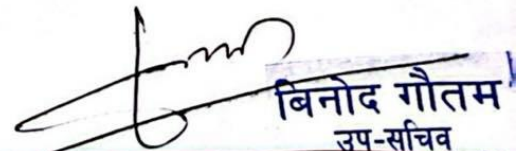 बिनोद गौतम
उप-सचिव